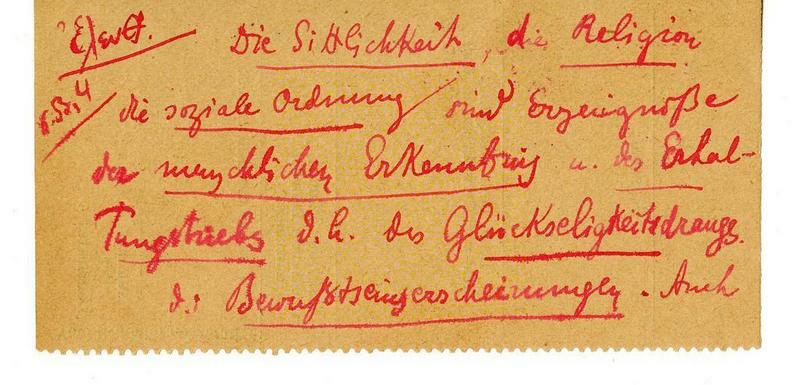 Die Sittlichkeit, die Religion
die soziale Ordnung sind Erzeugniße
der menschlichen Erkenntniß u. des Erhal-
tungstriebs d. h. des Glückseligkeitsdranges
d. Bewußtseinserscheinungen. Auch